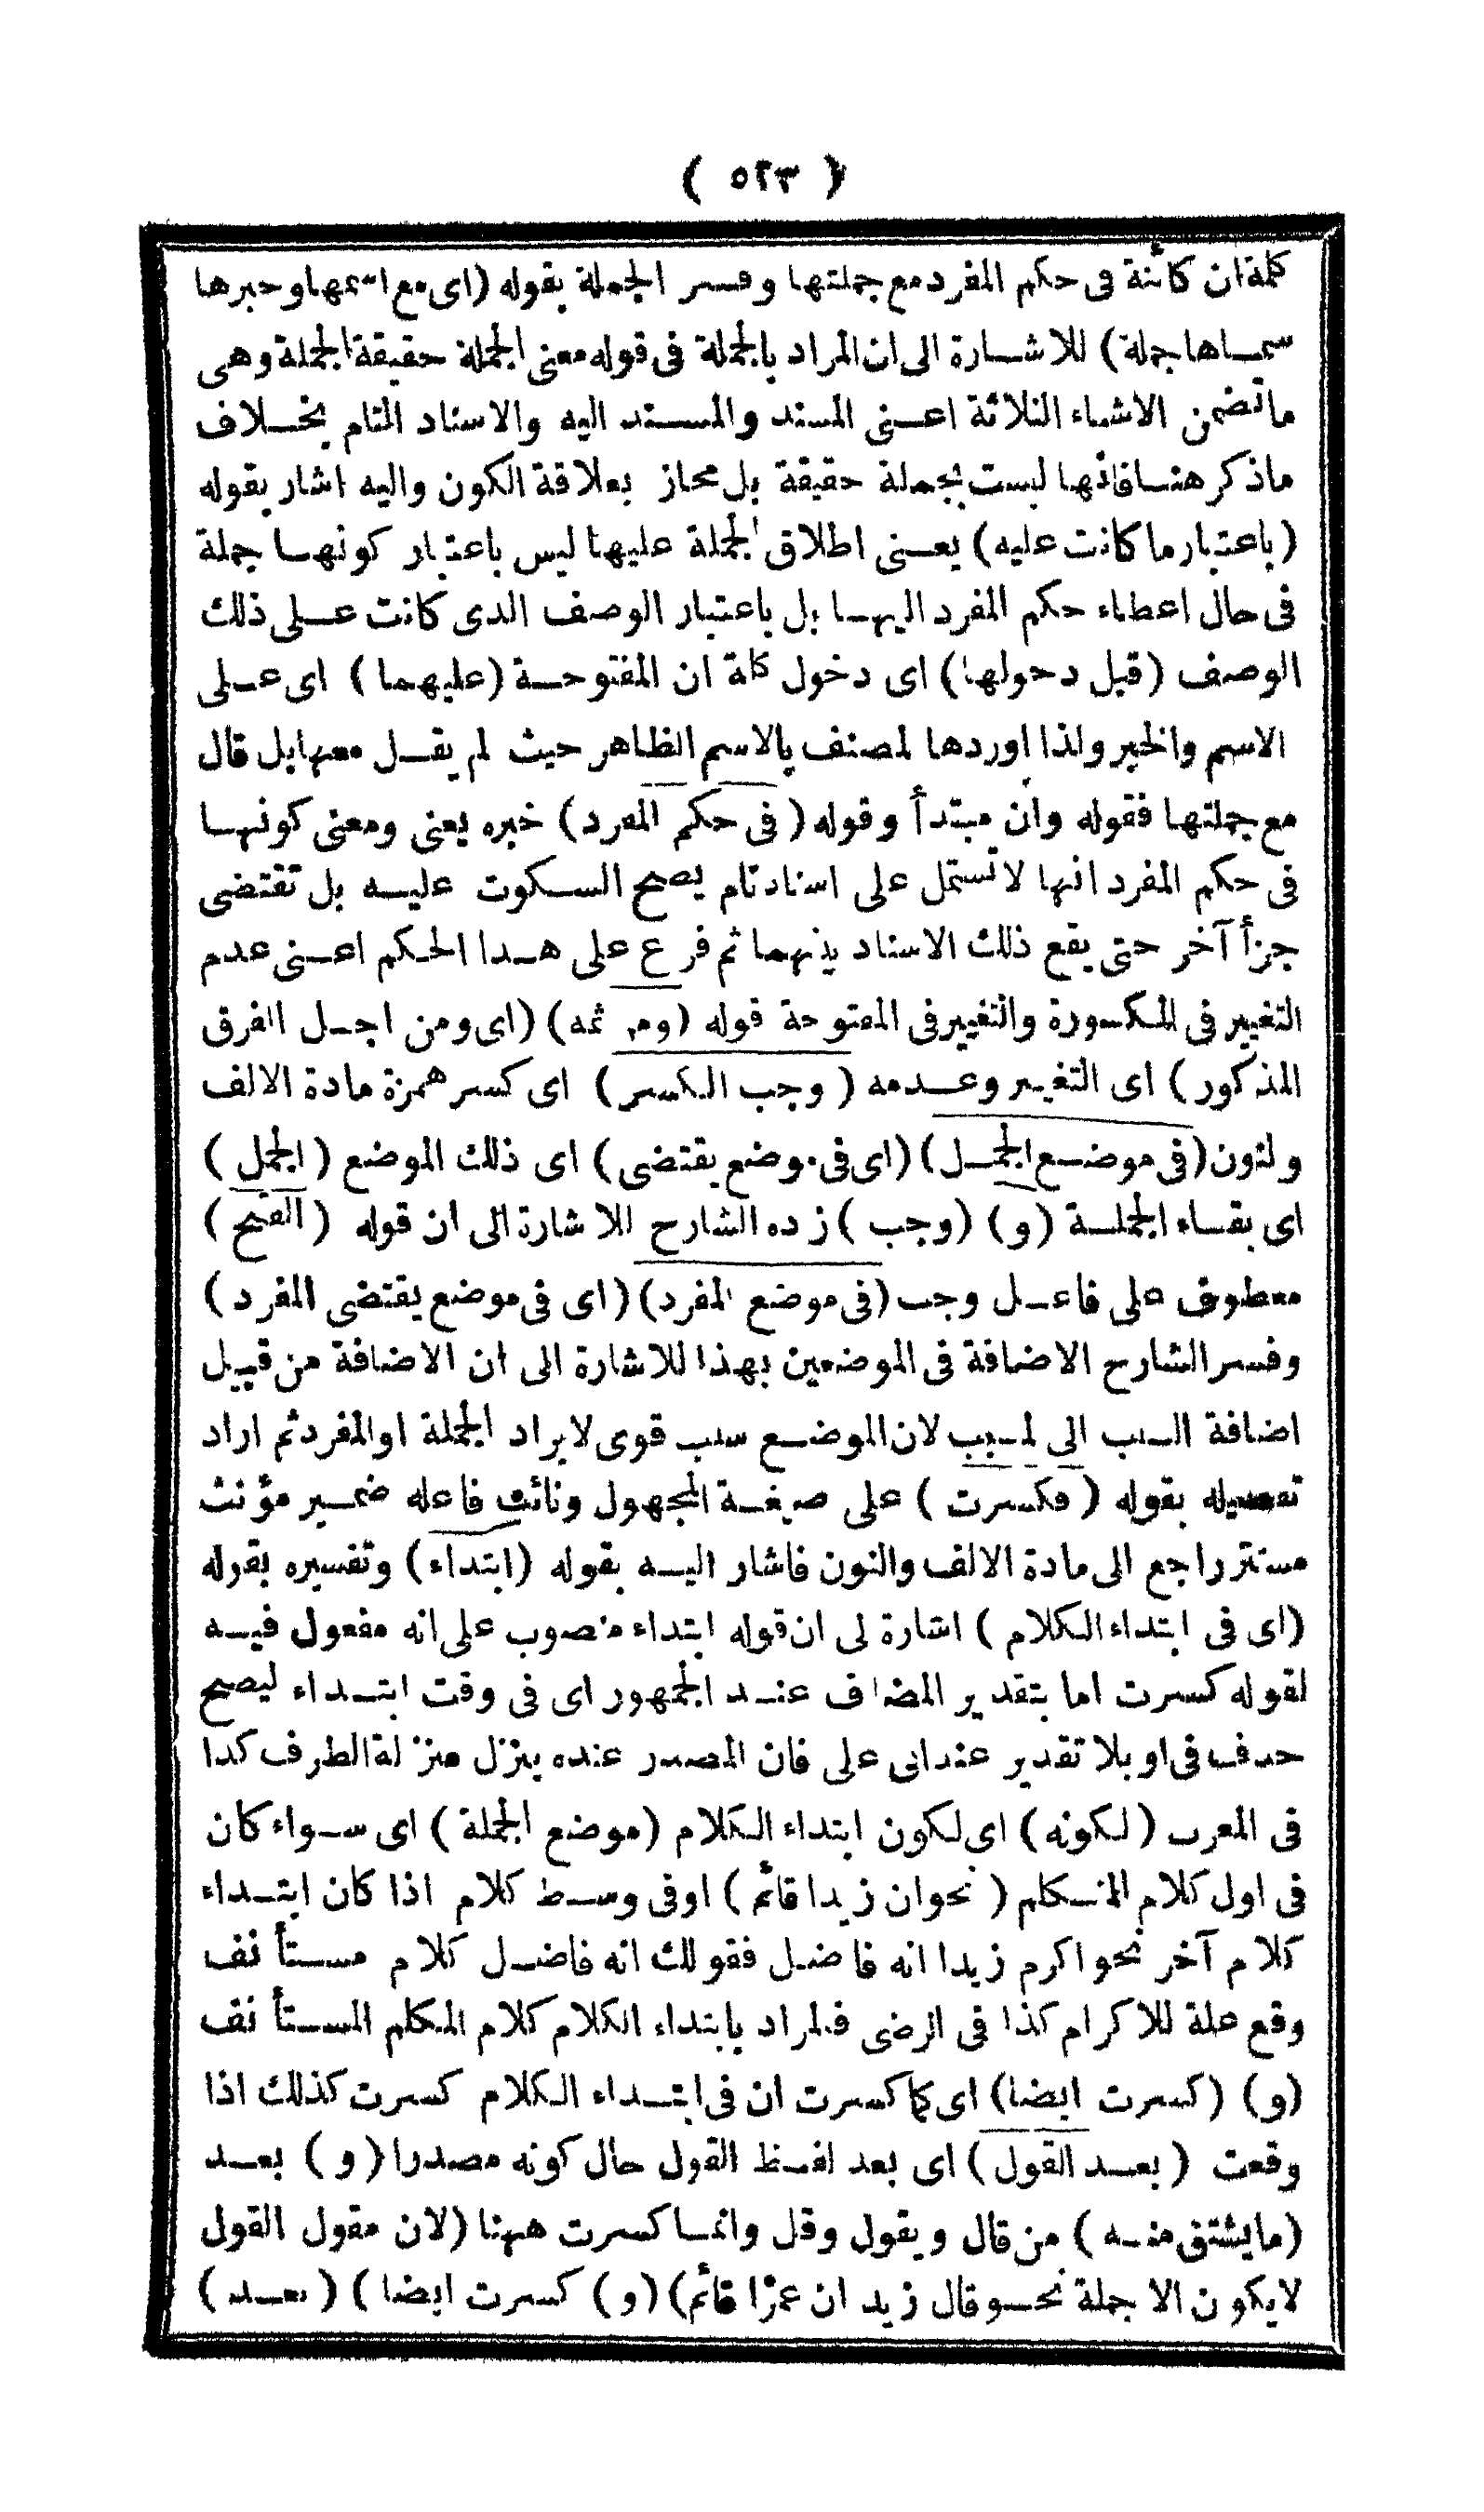 ( ٥٢٣ )
كلمة ان كائنة فى حكم المفرد مع جملتها وفسر الجملة بقوله (اى مع اسمها وخبرها
سماها جملة) للاشارة الى ان المراد بالجملة فى قوله معنى الجملة حقيقة الجملة وهى
ماتضمن الاشياء الثلاثة اعنى المسند والمسند اليه والاسناد التام بخلاف
ماذكر هنا فانها ليست بجملة حقيقة بل مجاز بعلاقة الكون واليه اشار بقوله
(باعتبار ما كانت عليه) يعنى اطلاق الجملة عليها ليس باعتبار كونها جملة
فى حال اعطاء حكم المفرد اليها بل باعتبار الوصف الذى كانت على ذلك
الوصف (قبل دخولها) اى دخول كلمة ان المفتوحة (عليهما) اى على
الاسم والخبر ولذا اوردها المصنف بالاسم الظاهر حيث لم يقل معها بل قال
مع جملتها فقوله وان مبتدأ وقوله (فى حكم المفرد) خبره يعنى ومعنى كونها
فى حكم المفرد انها لاتشتمل على اسناد تام يصح السكوت عليه بل تقتضى
جزأ آخر حتى يقع ذلك الاسناد بينهما ثم فرع على هذا الحكم اعنى عدم
التغيير فى المكسورة والتغيير فى المفتوحة قوله (ومن ثمه) (اى ومن اجل الفرق
المذكور) اى التغيير وعدمه (وجب الكسر) اى كسر همزة مادة الالف
والنون (فى موضع الجمل) (اى فى موضع يقتضى) اى ذلك الموضع (الجمل)
اى بقاء الجملة (و) (وجب) زاده الشارح للاشارة الى ان قوله (الفتح)
معطوف على فاعل وجب (فى موضع المفرد) (اى فى موضع يقتضى المفرد)
وفسر الشارح الاضافة فى الموضعين بهذا للاشارة الى ان الاضافة من قبيل
اضافة السبب الى المسبب لان الموضع سبب قوى لايراد الجملة او المفرد ثم اراد
تفصيله بقوله (فكسرت) على صيغة المجهول ونائب فاعله ضمير مؤنث
مستتر راجع الى مادة الالف والنون فاشار اليه بقوله (ابتداء) وتفسيره بقوله
(اى فى ابتداء الكلام) اشارة الى ان قوله ابتداء منصوب على انه مفعول فيه
لقوله كسرت اما بتقدير المضاف عند الجمهور اى فى وقت ابتداء ليصح
حذف فى او بلا تقدير عند ابى على فان المصدر عنده ينزل منزلة الظرف كذا
فى المعرب (لكونه) اى لكون ابتداء الكلام (موضع الجملة) اى سواء كان
فى اول كلام المتكلم (نحو ان زيدا قائم) او فى وسط كلام اذا كان ابتداء
كلام آخر نحو اكرم زيدا انه فاضل فقولك انه فاضل كلام مستأنف
وقع علة للاكرام كذا فى الرضى فالمراد بابتداء الكلام كلام المتكلم المستأنف
(و) (كسرت ايضا) اى كما كسرت ان فى ابتداء الكلام كسرت كذلك اذا
وقعت (بعد القول) اى بعد لفظ القول حال كونه مصدرا (و) بعد
(ما يشتق منه) من قال ويقول وقل وانما كسرت ههنا (لان مقول القول
لايكون الا جملة نحو قال زيد ان عمرًا قائم) (و) كسرت ايضا) (بعد)